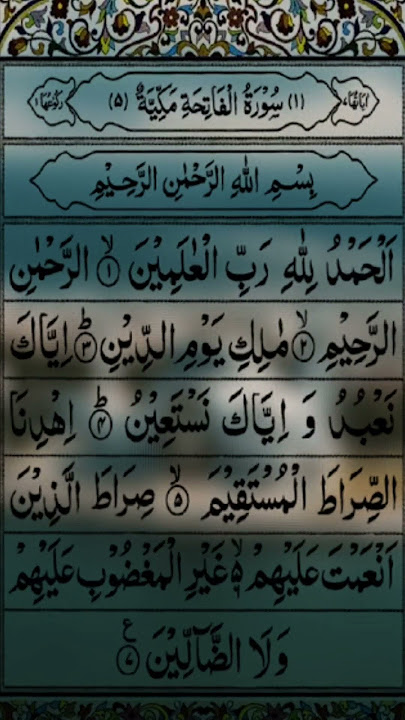 اٰیَاتُهَا ٧ (١) سُوْرَةُ الْفَاتِحَةِ مَكِّیَّةٌ (٥) رُكُوْعُهَا ١
بِسْمِ اللهِ الرَّحْمٰنِ الرَّحِیْمِ
اَلْحَمْدُ لِلّٰهِ رَبِّ الْعٰلَمِیْنَ ۙ﴿١﴾ الرَّحْمٰنِ
الرَّحِیْمِ ۙ﴿٢﴾ مٰلِكِ یَوْمِ الدِّیْنِ ؕ﴿٣﴾ اِیَّاكَ
نَعْبُدُ وَ اِیَّاكَ نَسْتَعِیْنُ ؕ﴿٤﴾ اِهْدِنَا
الصِّرَاطَ الْمُسْتَقِیْمَ ۙ﴿٥﴾ صِرَاطَ الَّذِیْنَ
اَنْعَمْتَ عَلَیْهِمْ ۙ۬ غَیْرِ الْمَغْضُوْبِ عَلَیْهِمْ
وَلَا الضَّآلِّیْنَ ﴿٧﴾ ع